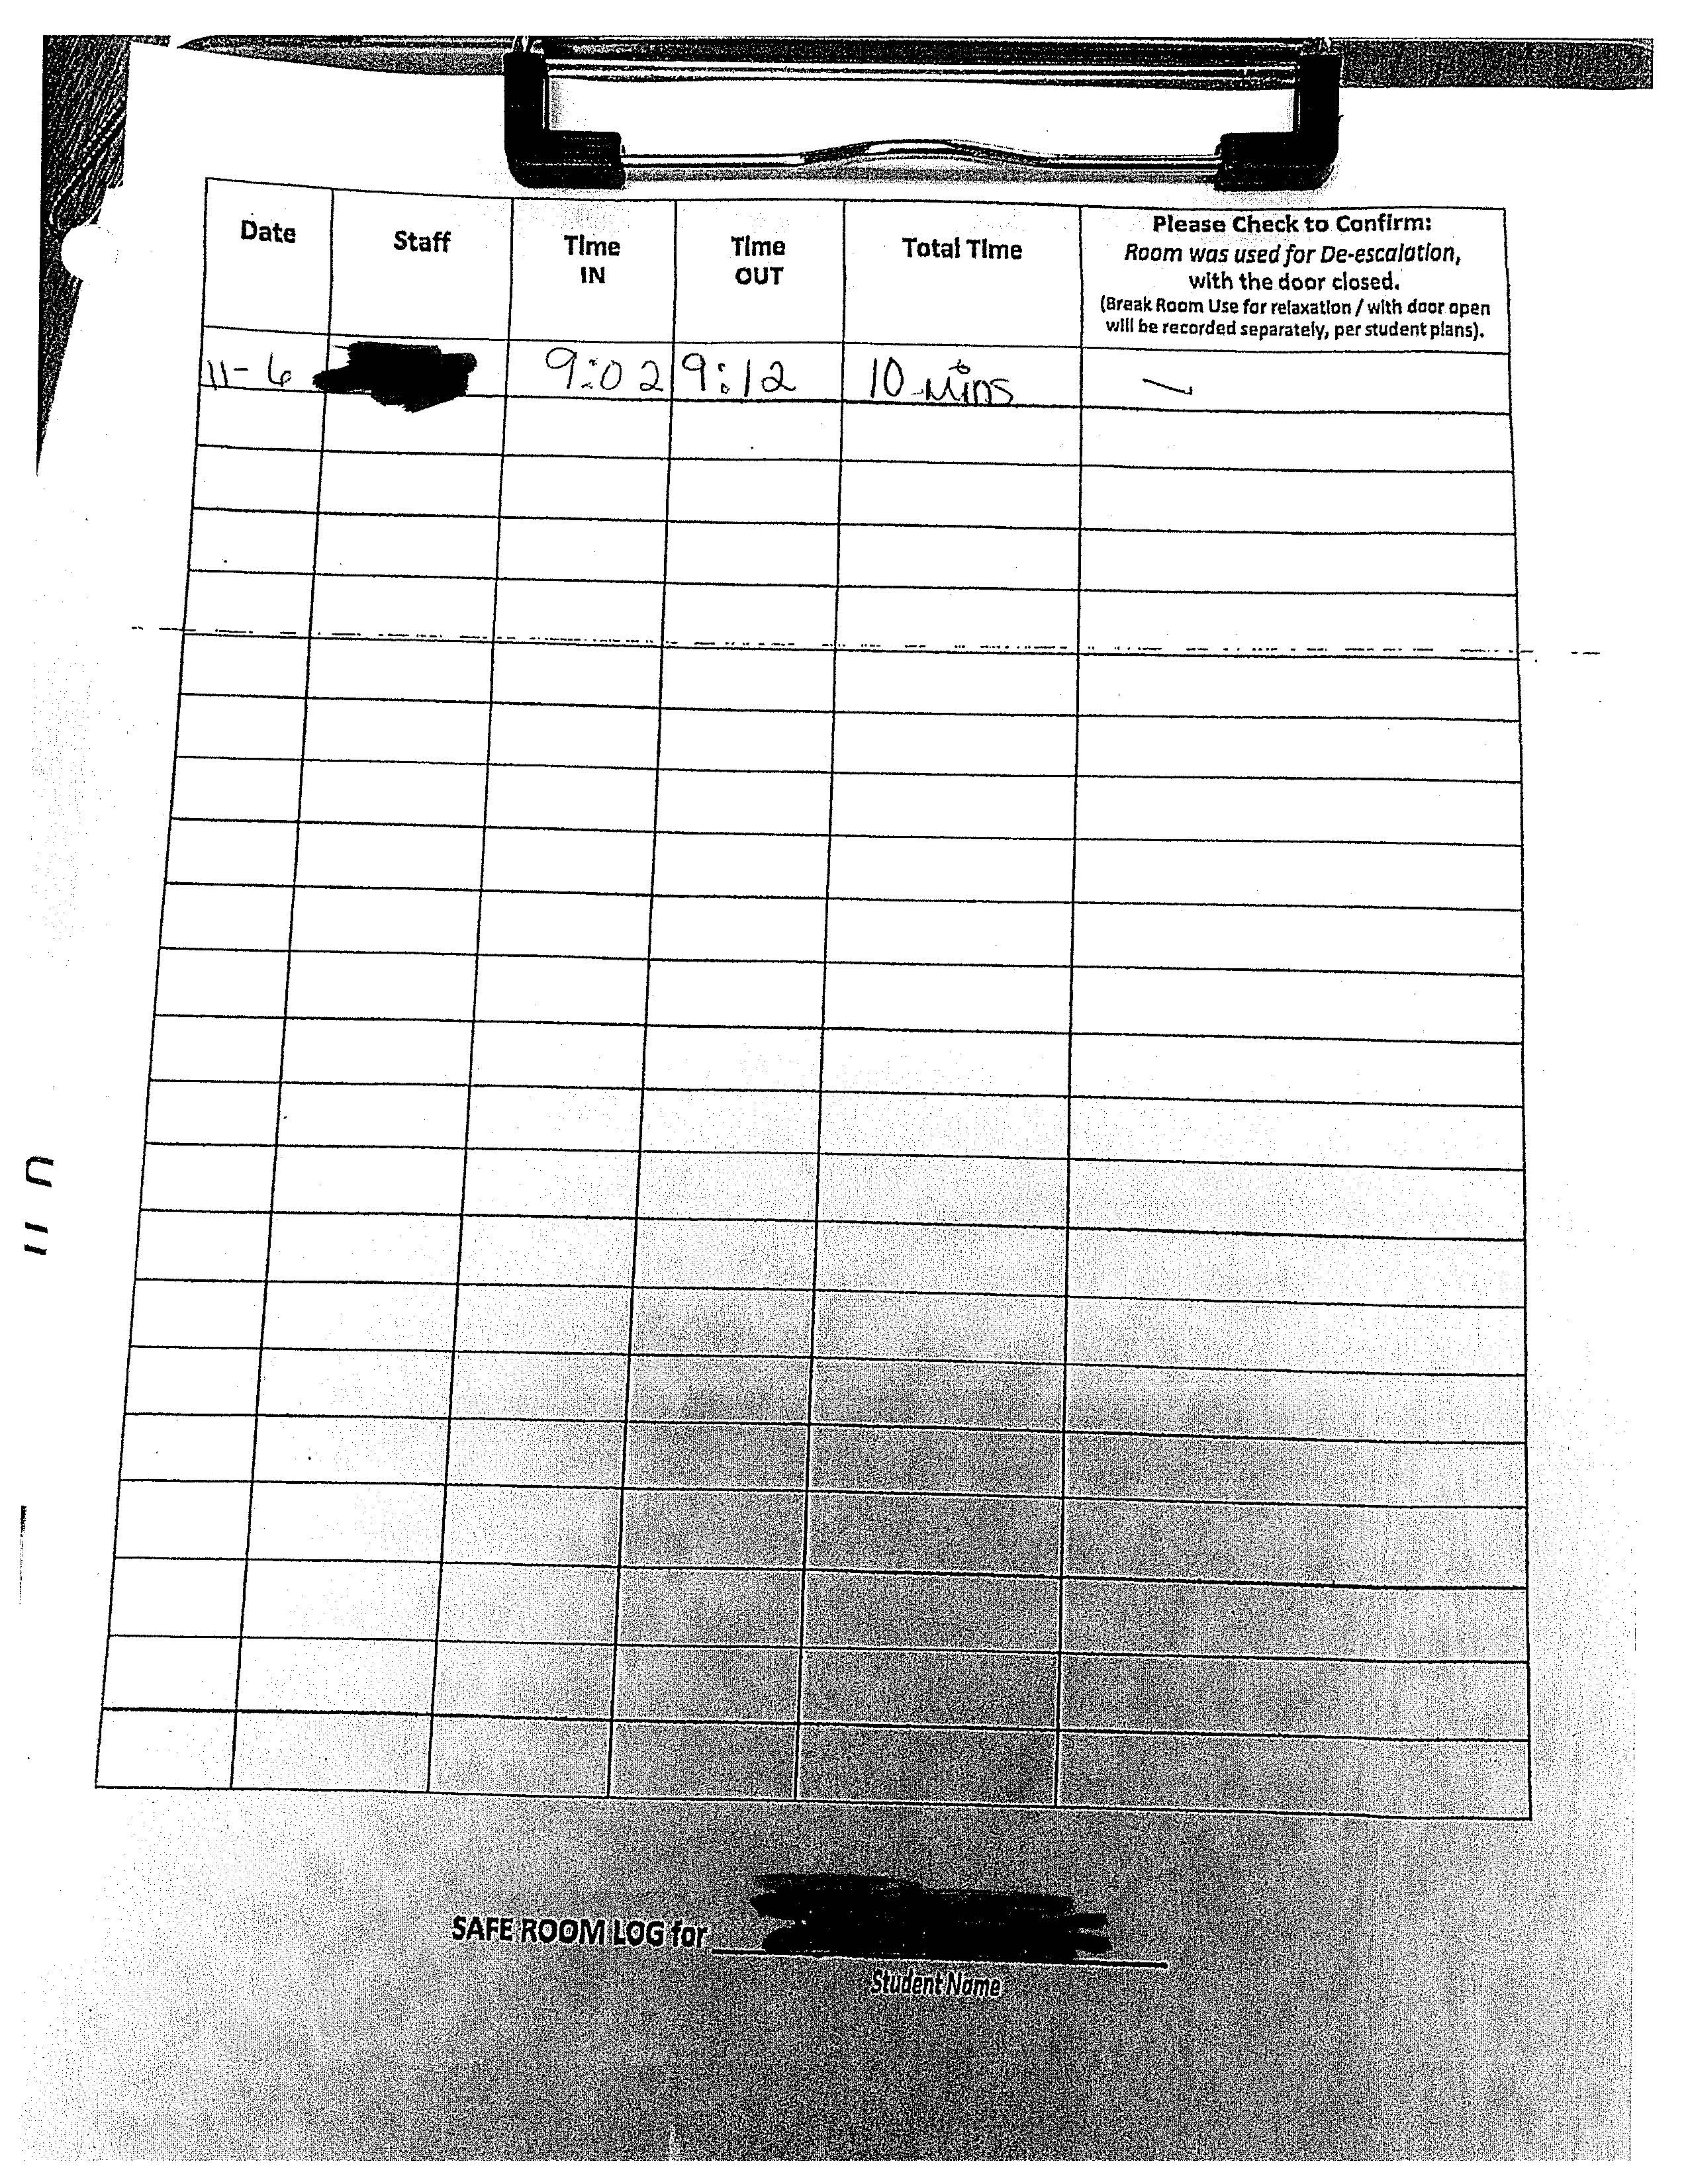 Date Staff Time IN Time OUT Total Time Please Check to Confirm:
Room was used for De-escalation,
with the door closed.
(Break Room Use for relaxation / with door open
will be recorded separately, per student plans).
11-6 9:02 9:12 10 mins ✓
SAFE ROOM LOG for
Student Name